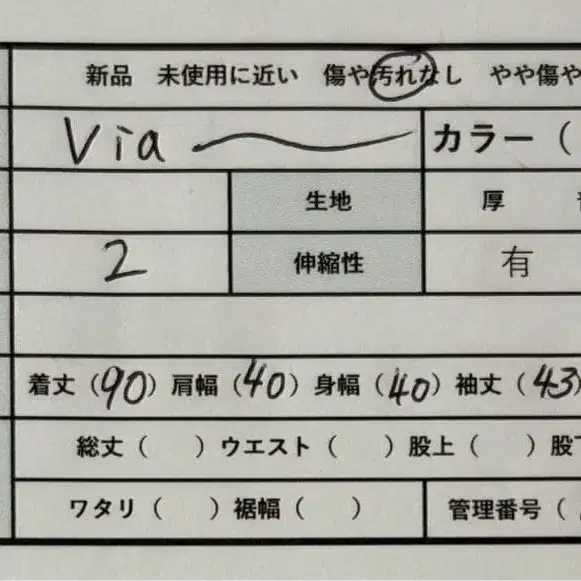 新品 未使用に近い 傷や汚れなし やや傷や
Via カラー（
生地 厚
2 伸縮性 有
着丈（90）肩幅（40）身幅（40）袖丈（43）
総丈（ ）ウエスト（ ）股上（ ）股下
ワタリ（ ）裾幅（ ） 管理番号（